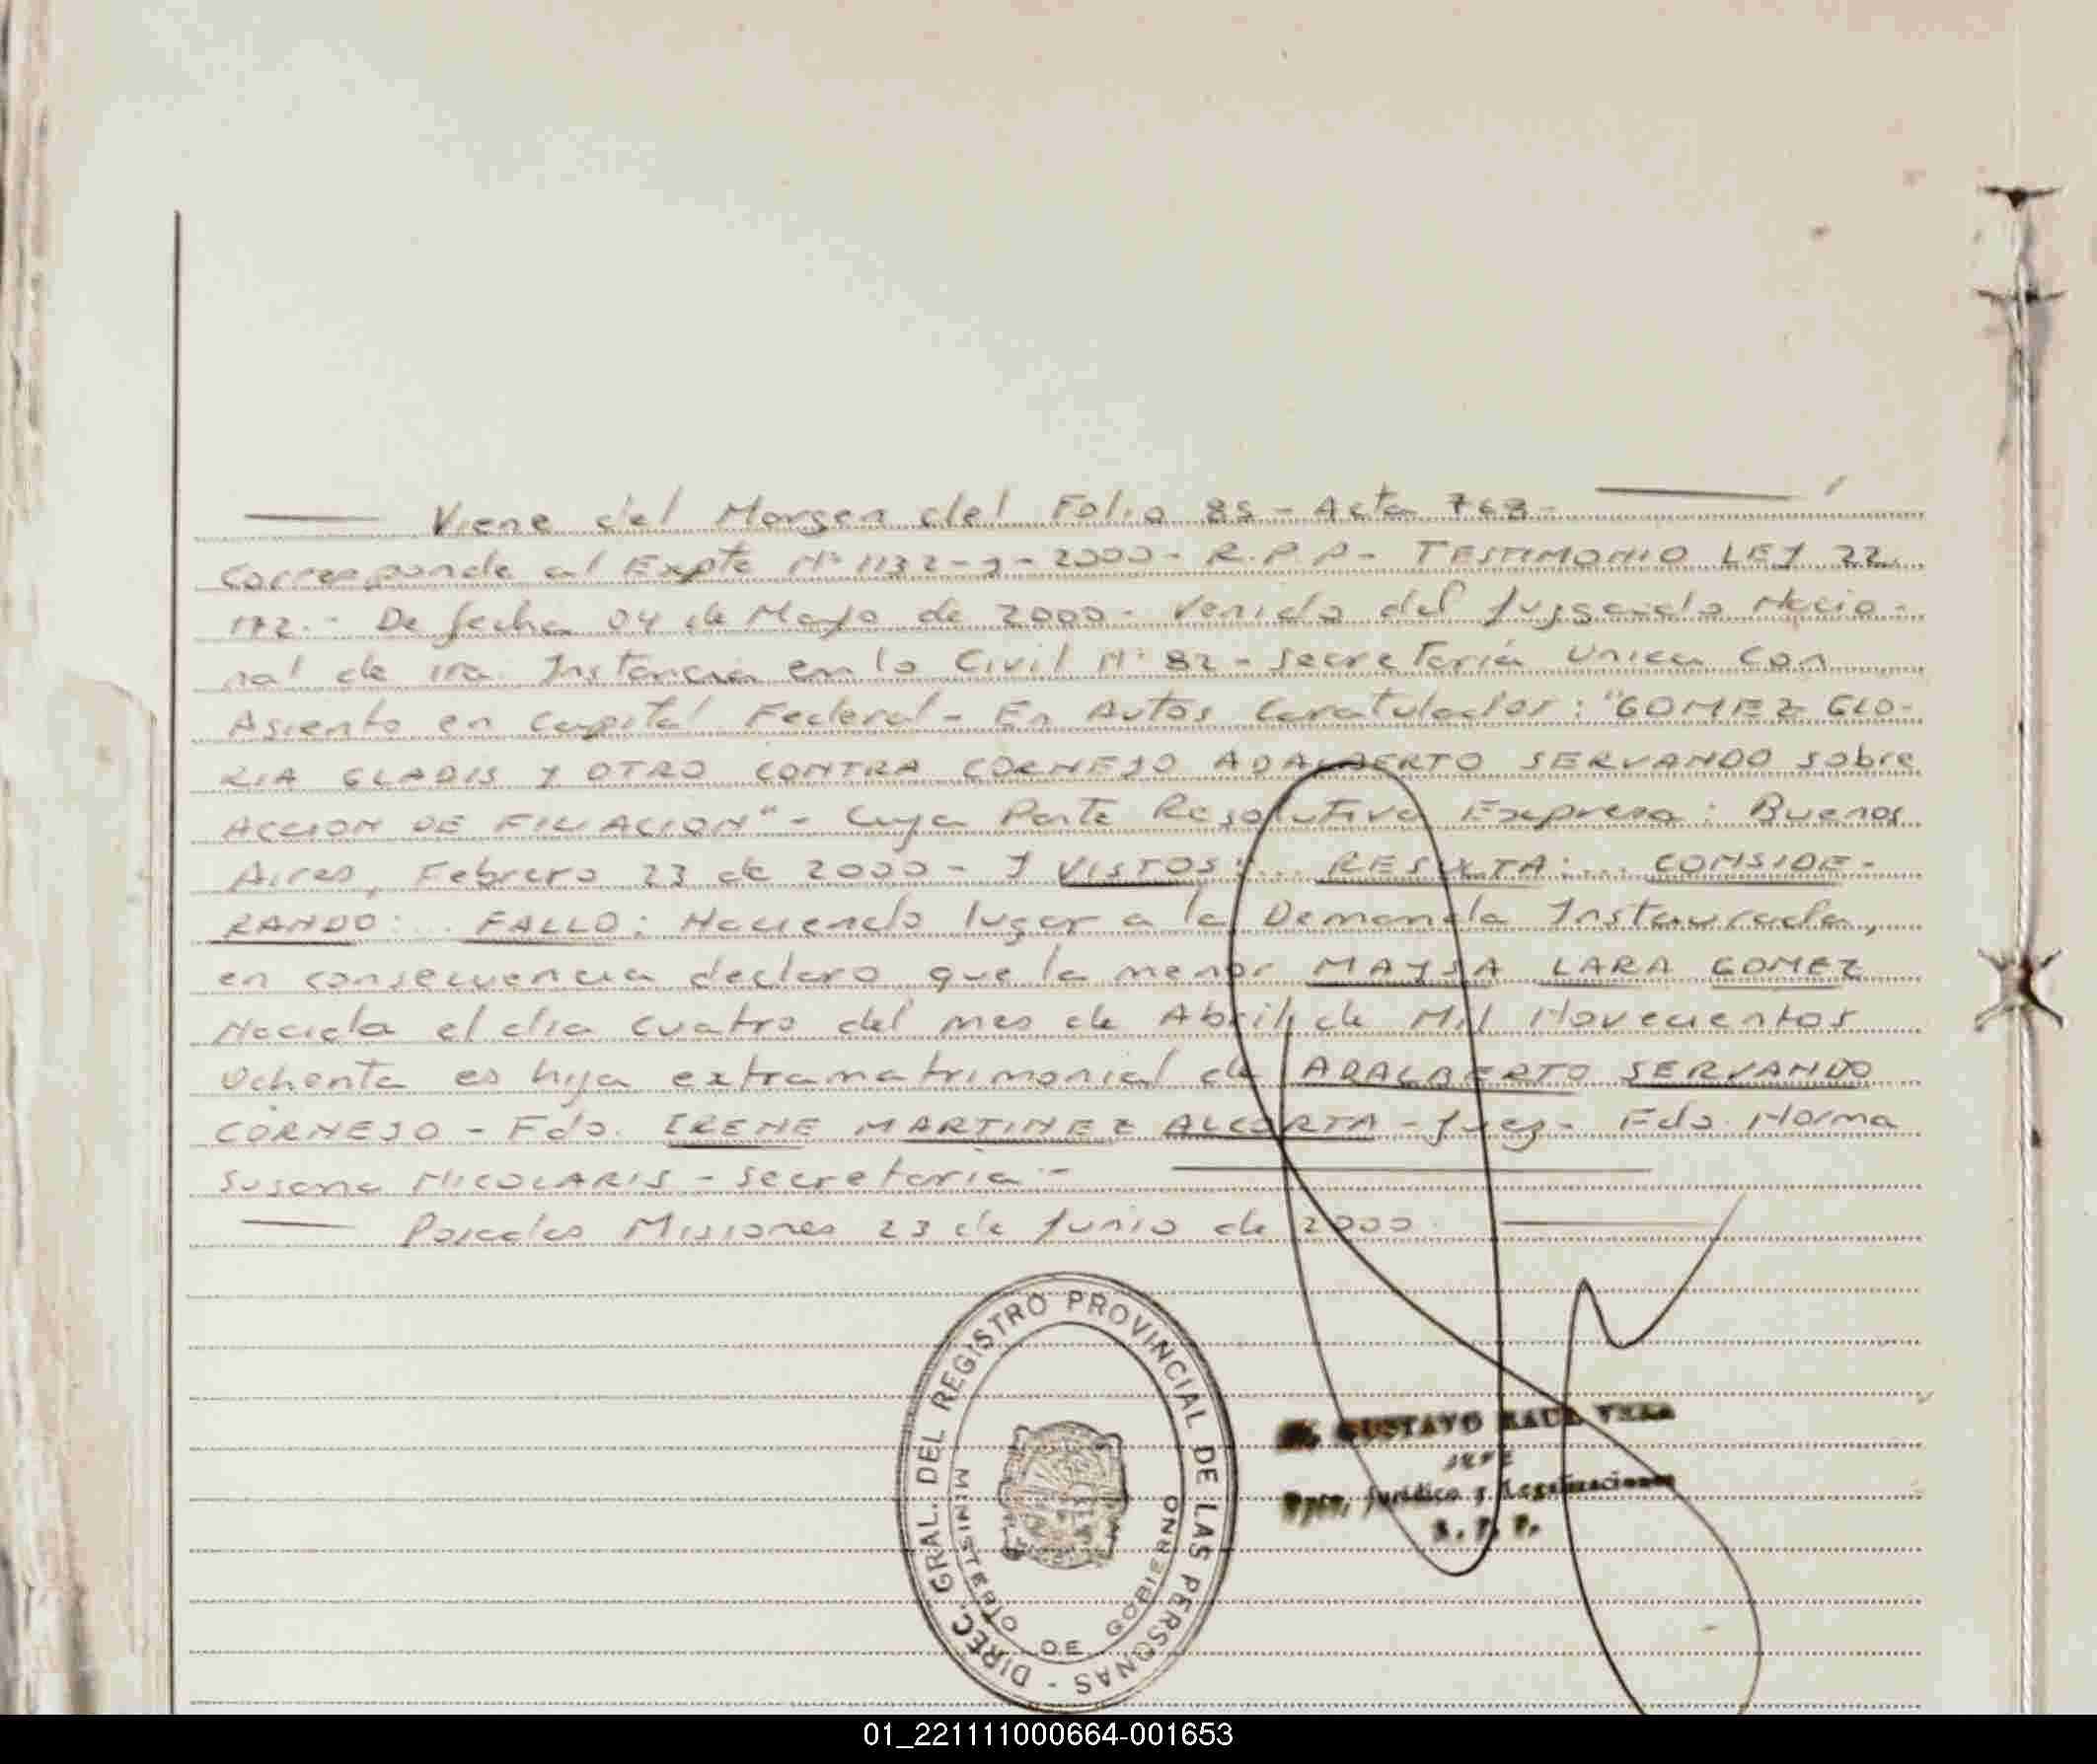 Viene del Margen del Folio 85 - Acta 768 -
Corresponde al Expte Nº 1132-g-2000- R.P.P- TESTIMONIO LEY 22.
172.- De fecha 04 de Mayo de 2000- Venido del Juzgado Nacio-
nal de 1ra. Instancia en lo Civil Nº 82 - Secretaría Unica con
Asiento en Capital Federal - En Autos Caratulados: "GOMEZ GLO-
RIA GLADIS Y OTRO CONTRA CORNEJO ADALBERTO SERVANDO sobre
ACCION DE FILIACION" - Cuya Parte Resolutiva Expresa: Buenos
Aires, Febrero 23 de 2000 - Y VISTOS:... RESULTA:... CONSIDE-
RANDO:... FALLO: Haciendo lugar a la Demanda Instaurada,
en consecuencia declaro que la menor MAYSA LARA GOMEZ
Nacida el dia cuatro del mes de Abril de Mil Novecientos
Ochenta es hija extramatrimonial de ADALBERTO SERVANDO
CORNEJO - Fdo. IRENE MARTINEZ ALCORTA - Juez - Fdo. Norma
Susana NICOLARIS - Secretaria -
Posadas Misiones 23 de Junio de 2000.
DIREC. GRAL. DEL REGISTRO PROVINCIAL DE LAS PERSONAS -
MINISTERIO DE GOBIERNO
GUSTAVO RAUL VERA
JEFE
Dpto. Jurídico y Legalizaciones
R. P. P.
01_221111000664-001653